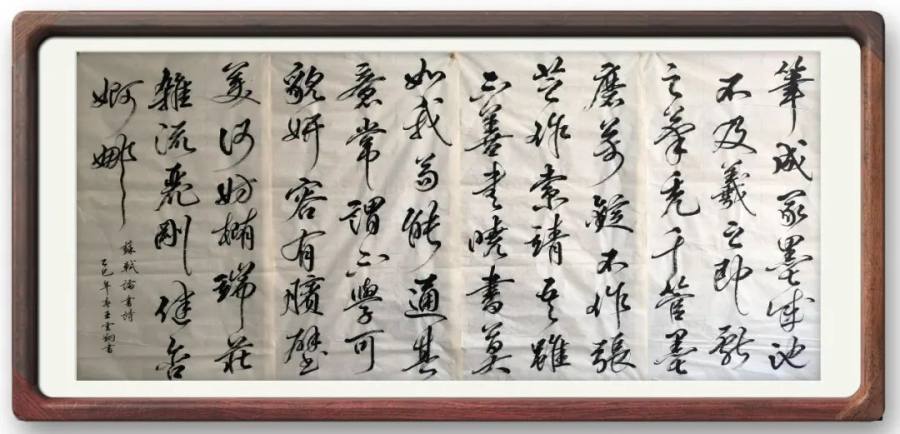 筆成冢墨成池
不及羲之即獻
之筆禿千管墨
磨萬錠不作張
芝作索靖吾雖
不善書曉書莫
如我苟能通其
意常謂不學可
貌妍容有臏璧
美何妨橢端莊
雜流麗剛健含
婀娜
蘇軾論書詩
乙巳年春王雲書